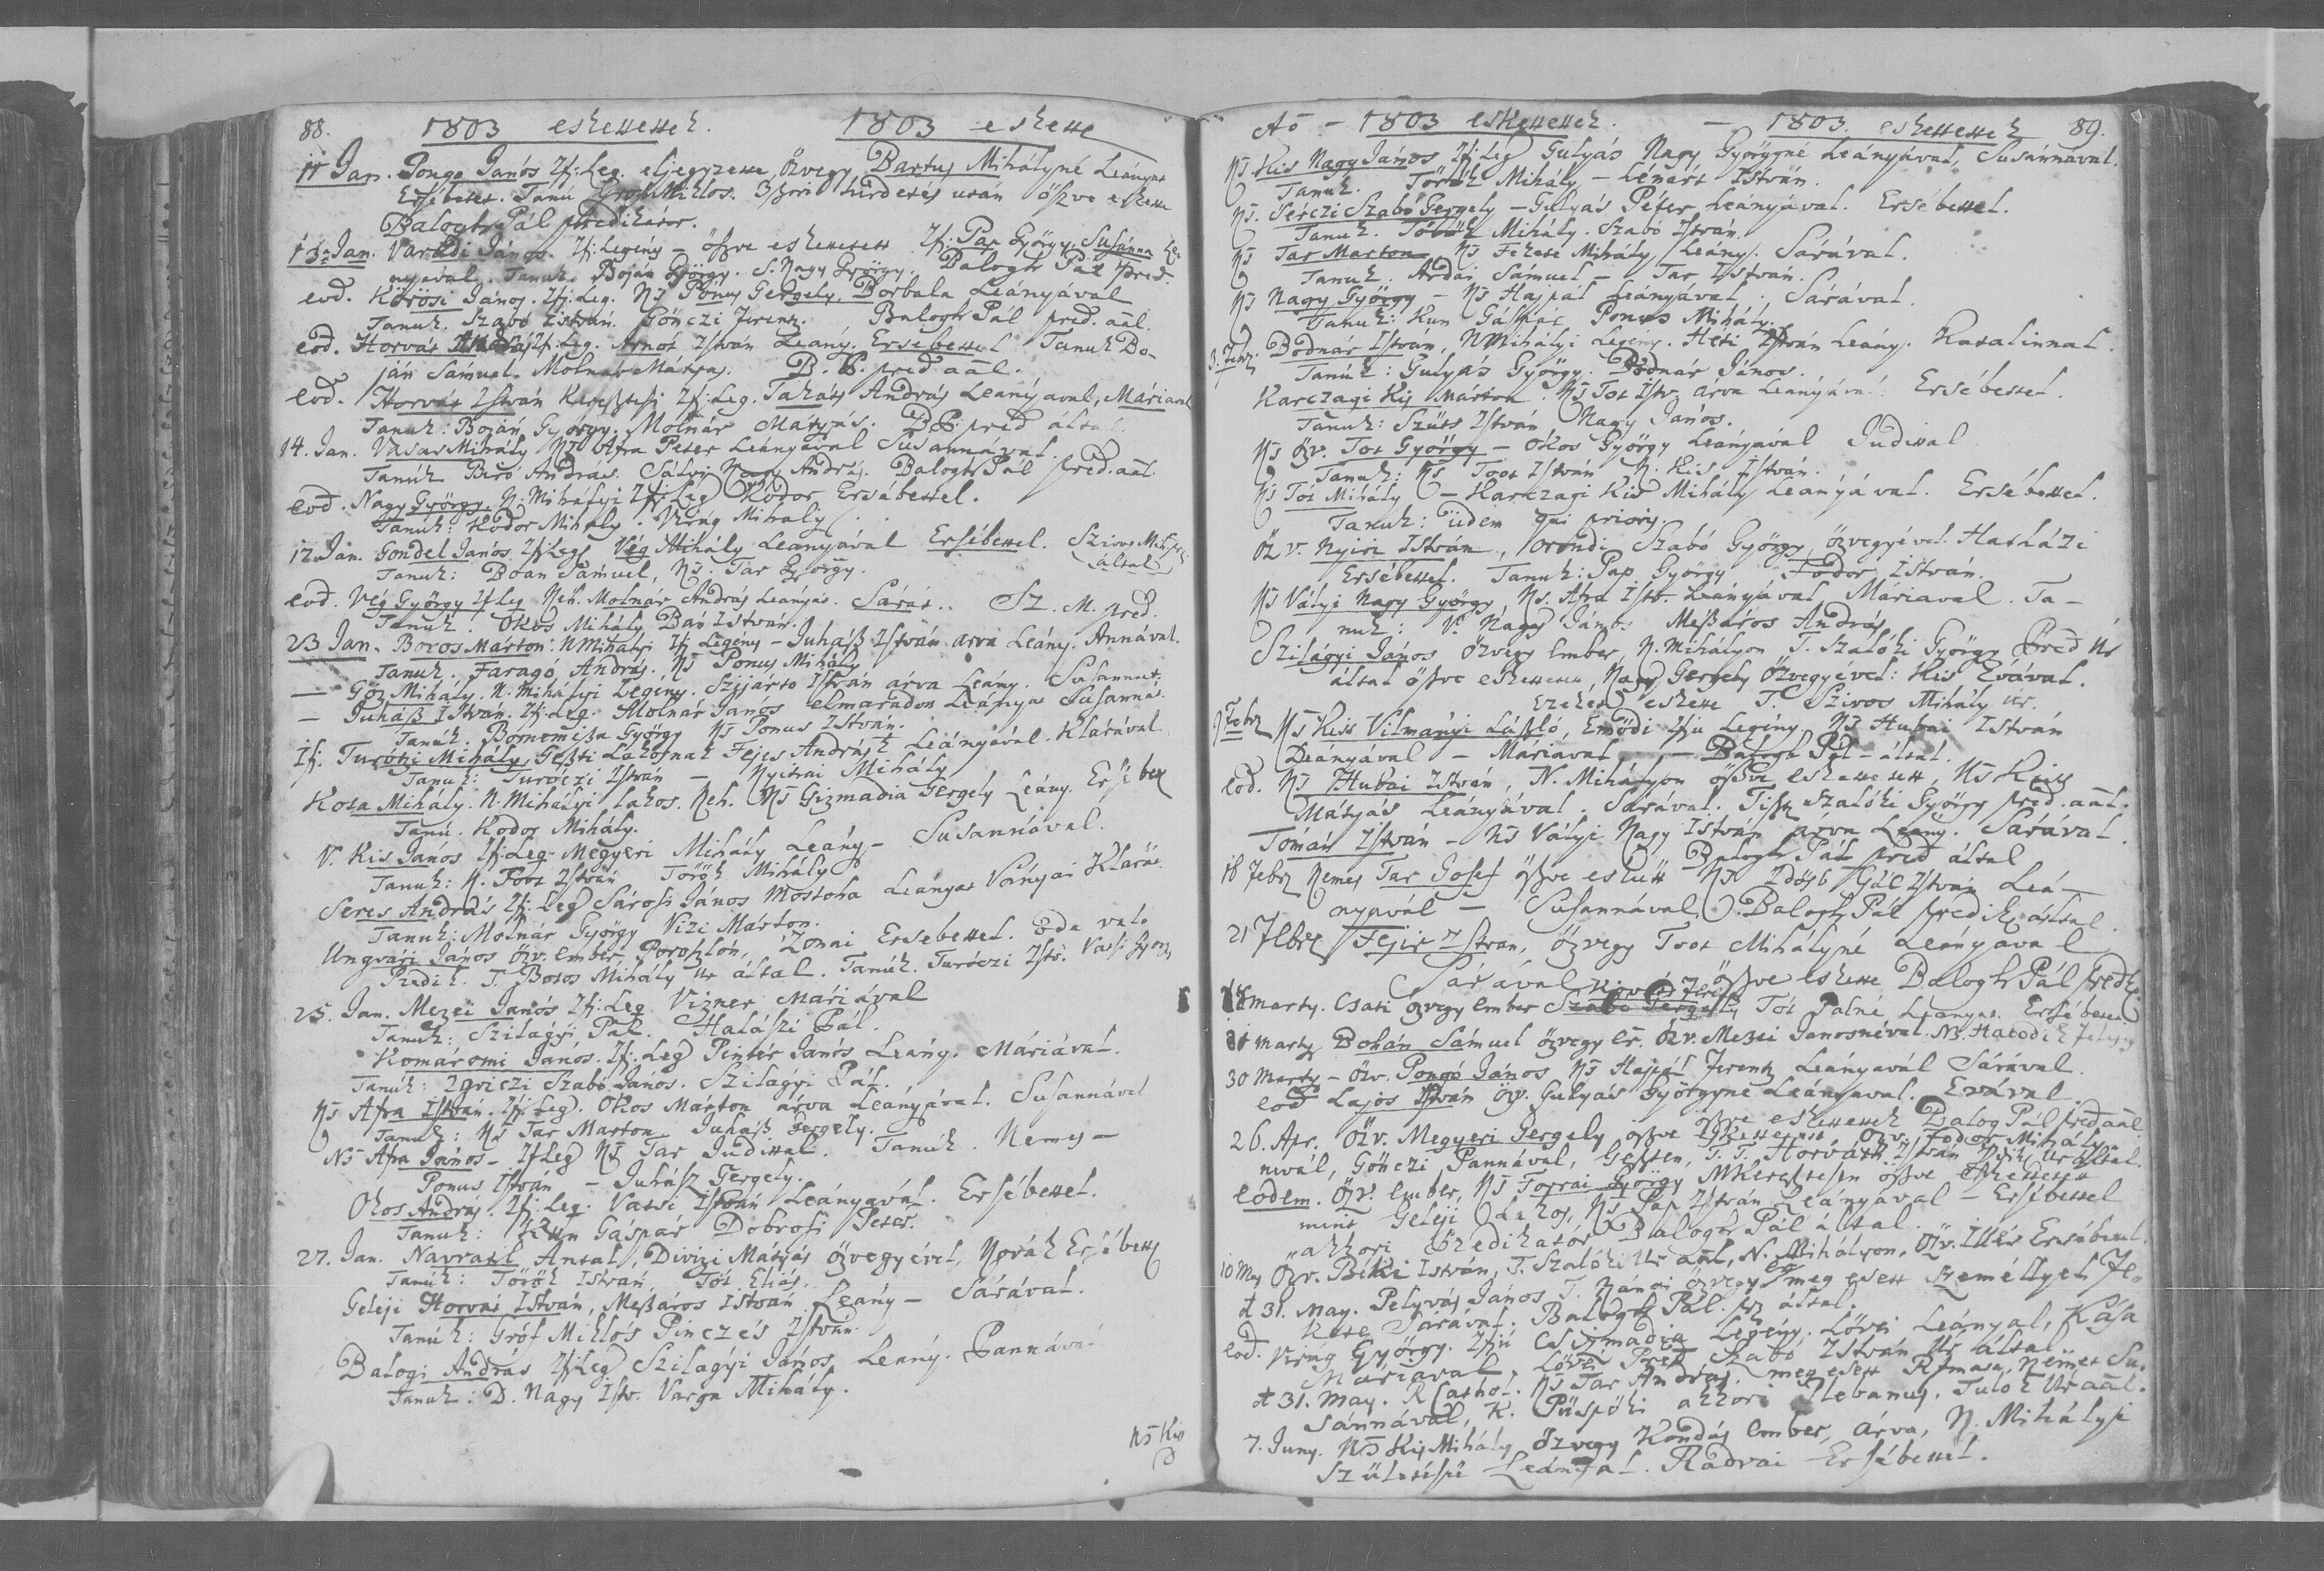 88. 1803 eskettettek. 1803 eskette
11 Jan. Pongo János Ifj: Leg. eljegyzette, Özvegy Bartus Mihályné Leányát
Ersébetet. Tanú Grof Miklos. 3szori hirdetés után öszve eskette
Balogh Pál Predikátor.
13. Jan. Váradi János. Ifj: Legény - öszve eskettetett Ifj: Pap György Susánna Le-
nyával. Tanuk. Boján György. S. Nagy György. Balogh Pál Pred.
eod. Körösi János. Ifj: Leg. Ns Pónus Gergely, Borbala Leányával
Tanuk. Szabó István. Gönczi Ferentz. Balogh Pál pred. aál.
eod. Horvát András Ifj. Leg. Arnot István Leány. Ersébettel Tanuk Bo-
ján Sámuel. Molnar Mátyás. B. P. pred aál.
eod. Horvát István Keresztesi Ifj: Leg. Takáts András Leányával, Máriaval
Tanuk: Boján György. Molnár Mátyás. B. P. pred által
14. Jan. Vasas Mihály Ns Afra Péter Leányával Susannával.
Tanúk Biró András. Nagy András. Balogh Pál pred. aál.
eod. Nagy György. N: Mihályi Ifj: Leg Kódor Ersébettel.
Tanúk: Kódor Mihály. Virág Mihály
17 Jan. Gondel János Ifj: Leg Vég Mihály Leányával Ersébettel. Szivos Mih pr.
által
Tanuk: Boan Sámuel, Ns. Tar György.
eod. Vég György If Leg Néh. Molnár András Leányát. Sárát.. Sz. M. pred.
Tanuk. Okos Mihály István.
23 Jan. Boros Márton: N Mihályi Ifj. Legény - Juhász István arva Leány. Annával.
Tanuk. Faragó András. Ns Ponus Mihály
— Göz Mihály. N. Mihályi Legény. Szijártó István árva Leány. Susannát.
— Juhász István. Ifj: Leg. Molnár János elmaradott Leányát Susannát.
Tanúk. Bornemisza György Ns Ponus István.
If. Turótzi Mihály, Geszti Lakosnak Fejes András Leányával. Klárával.
Tanuk: Turóczi István — Nyitrai Mihály
Kota Mihály. N. Mihályi lakos. Neh. Ns Gizmadia Gergely Leány. Ersébet
Tanú. Kodor Mihály.
V. Kis János Ifj: Leg. Megyeri Mihály Leány - Susannával.
Tanuk: N. Toot István Török Mihály
Seres András Ifj: Leg Sárosi János Mostoha Leányát Vonyai Klarát.
Tanuk: Molnár György Vizi Márton.
Ungvári János Özv. ember, Poroszlón, Zonai Ersebettel. oda valo
Predik. T. Bosos Mihály Ur által. Tanúk. Turóczi Istv. Vassi György
25. Jan. Mezei János Ifj: Leg Vizner Máriával
Tanuk: Szilágyi Pál. Halászi Pál.
Komáromi János. If: Leg Pintér János Leány. Máriával.
Tanúk: Igriczi Szabó János. Szilágyi Pál.
Ns Afra István. Ifj Leg. Okos Márton árva Leányával. Susannával
Tanuk: Ns Tar Marton. Juhász Gergely.
Ns Afra János - If Leg Ns Tar Judittal. Tanúk. Nemes
Ponus István - Juhász Gergely.
Okos András. Ifj: Leg. Vassi István Leányával. Ersébettel.
Tanuk: Kun Gáspár Dobrosi Peter.
27. Jan. Navratil Antal, Divizi Mátyás özvegyével, Novák Ersébettel
Tanúk: Török István Tót Eliás.
Geleji Horvát István, Meszáros István Leány - Sárával.
Tanúk: Gróf Miklós Pinczés István.
Balogi András Ifj Leg Szilágyi János Leány. Pannával
Tanuk: D. Nagy Istv. Varga Mihály.
Ns Kis
Ao - 1803 eskettettek. — 1803. eskettettek 89.
Ns. Kis Nagy János Ifj: Leg Gulyás Nagy Györgyné Leányával, Susánnával.
Tanuk. Török Mihály - Lénárt István.
Ns. Sérczi Szabó Gergely - Gulyás Péter Leányával. Ersébettel.
Tanuk. Török Mihály. Szabó István.
Ns Tar Marton Ns Fekete Mihály Leány. Sárával.
Tanuk. Ardai Sámuel - Tar István.
Ns Nagy György - Ns Hajpál Leányával, Sárával.
Tanuk: Kun Gáspár Ponus Mihály.
3. Febr. Bodnár István, N Mihályi Legény. Héti István Leány. Katalinnal.
Tanúk: Gulyás György. Bodnár János.
Karczagi Kis Márton. Ns Tot Istv. árva Leányával Ersébettel.
Tanuk: Szüts István Nagy János.
Ns Özv. Tot György - Okos György Leányával Judittal
Tanuk: Ns Toot István N. Kis István.
Ns Tót Mihály - Karczagi Kis Mihály Leányával. Ersébettel.
Tanuk: iidem qui prioris.
Özv. Nyiri István, Szabó György özvegyével Hatházi
Ersébettel. Tanuk: Pap György Fodor István.
Ns Vályi Nagy György Ns. Afra Istv. Leányával Máriaval. Ta-
nuk: V. Nagy János Meszáros András
Szilágyi János Özvegy ember, N. Mihályon T. Szalóki György Pred Ur
által öszve eskettetett, Nagy Gergely Özvegyével: Kis Évával.
ezeket eskette T. Szivos Mihály úr.
9 Febr Ns Kiss Vilmányi László, Emödi Ifiu Legény, Ns Hubai István
Leányával - Máriaval, - Balogh Pál - által.
eod. Ns Hubai István, N. Mihályon öszve eskettetett, Ns Kiss
Mátyás Leányával. Sárával. Tiszt Szalóki György pred. aál.
Tómán István - Ns Vályi Nagy István árva Leány. Sárával
Balogh Pál pred által
18 Febr Nemes Tar Josef öszve esküt Ns Idösb Gál István Leá-
nyavál — Susannával. Balogh Pál predik által.
21 Febr Fejir Istvan, Özvegy Toot Mihályné Leányával
Sárával öszve eskette Balogh Pál pred.
18 Marty. Csati özvegy ember Szabó Gergely Tot Palné Leányát. Ersébetet
21 Marty Bohán Sámuel özvegy Er. Özv. Mezei Janosnéval. NB. Hatodik
30 Marty - Özv. Pongó János Ns Hajpál Ferentz Leányavál Sárával.
eod Lajos István Özv. Gulyás Györgyné Leányával. Evával.
öszve eskettettek Balog Pál pred aál
26. Apr. Özv. Megyeri Gergely öszve eskettetett, Özv. Fodor Mihály-
nivál, Gönczi Pannával, Geszten, T. T. Horváth István Úr által.
eodem. Özv. ember, Ns Forrai György MKeresztesen öszve eskettetett
mint Geleji Lakos, Ns Pap István Leányával - Ersébettel
akkori Predikátor Balogh Pál által.
10 May Özv. Biki István, T. Szalóki Ur aál, N. Mihályon, Özv. Illés Ersébettel.
d 31. May. Pelyvás János T. Nánai özvegy meg esett személlyel Fe-
kete Sárával. Balogh Pál. pr által.
eod. Virág György. Ifjú Csizmadia Legény. Lövei Leányal, Kása
Máriaval Lövei Pred Szabó István Ur által.
d 31. May. R Cathol. Ns Tar András. meg esett Rimasz. Német Su-
sánnával, K. Püspöki akkori Plebanus. Tulok Ur aál.
7. Juny. Ns Kis Mihály özvegy Kondás ember, árva, N. Mihályi
születésü Leányal. Rádvai Ersébettel.